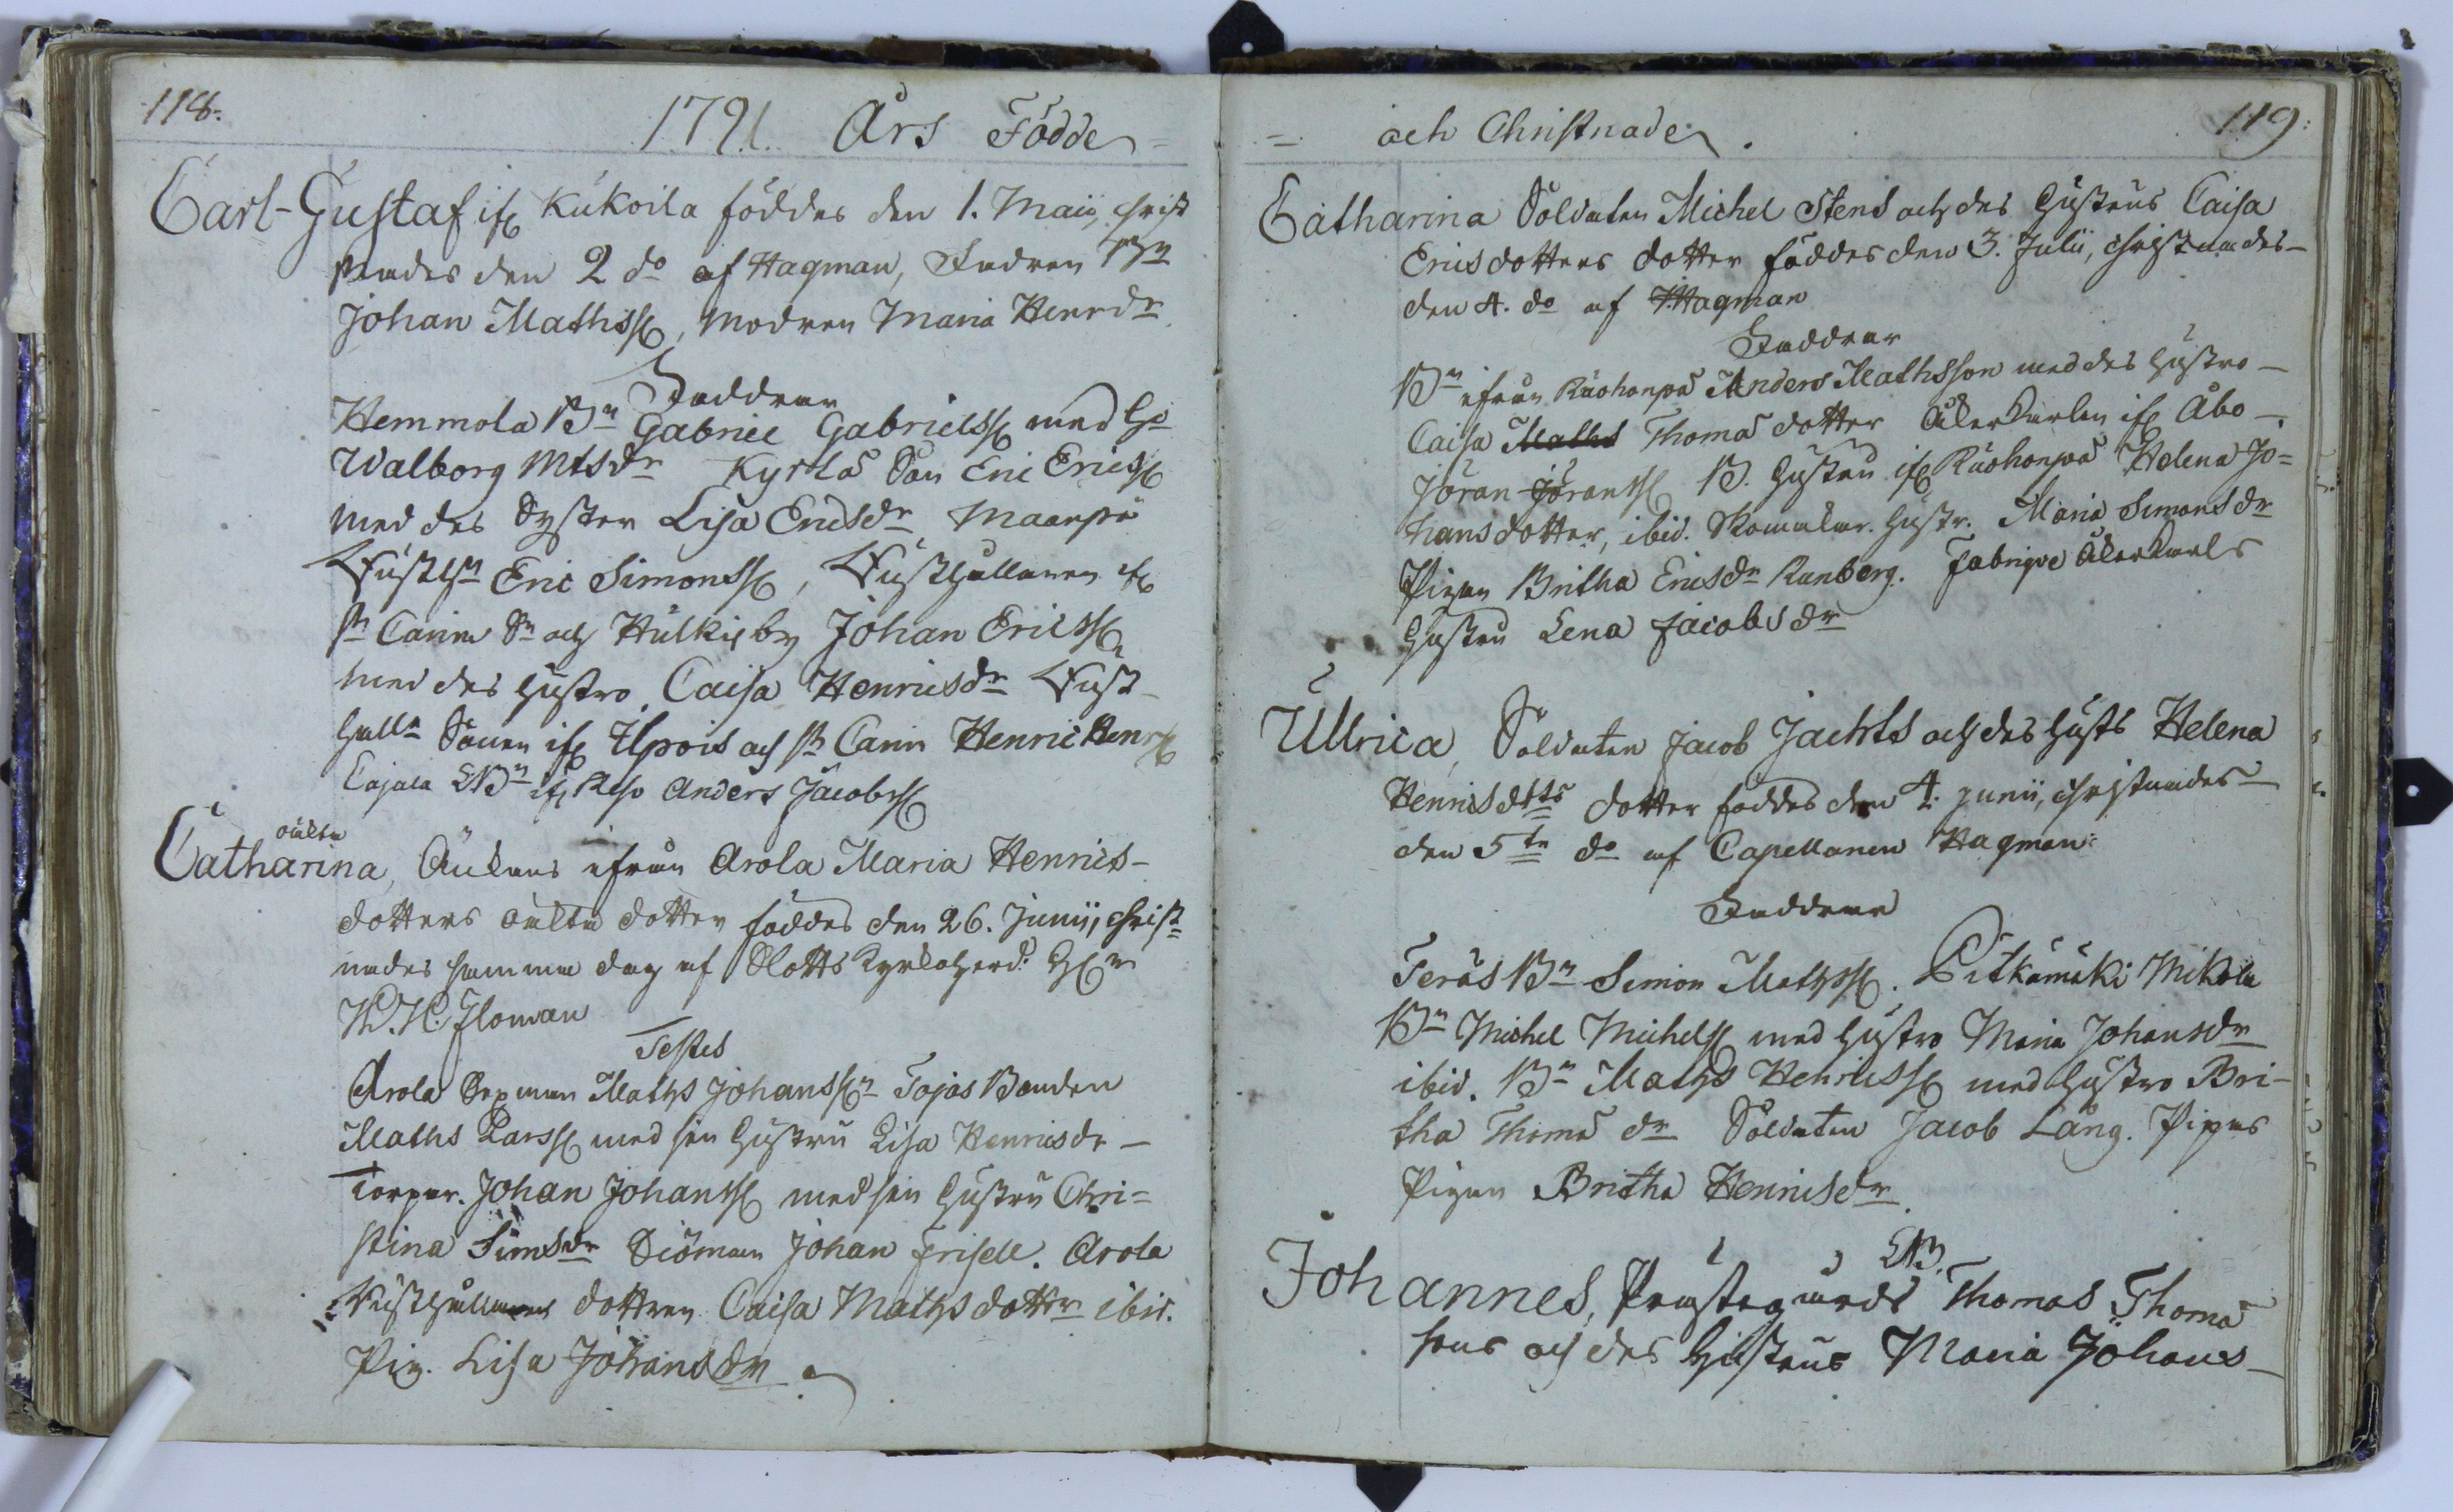 118.
1791. Års Födde =
Carl-Gustaf ifr Kukoila föddes den 1. Maii, christ
nades den 2 do af Hagman, Fadren Bn
Johan Mathss, Modren Maria Henrdr
Faddrar
Hemmola Bn Gabriel Gabrielss med Ho
Walborg Mtsdr Kyrlä Son Eric Ericss
med des Syster Lisa Ericsdr Maanpä
Eric Simonss, Rusthållaren ifr
St Carins Sn och Hulkisby Johan Ericss
med des hustro Caisa Henricsdr Rust-
hålls Sonen ifr Ilpois och St Carin Henric Henrss
Cajala Bn ifr Reso Anders Jacobss
oäkta
Catharina, Änkans ifrån Arola Maria Henrics-
dotters oäkta dotter föddes den 26. Junii, christ=
nades samma dag af Slotts Kyrkoherd. Hr
Floman
Testes
Arola Sexman Maths Johanssn Tojas Bonden
Maths Larss med sin hustru Lisa Henricsdr -
Torpar. Johan Johanss med sin hustru Chri=
stina Simsdr Siöman Johan Frisell. Arola
Rusthållarens dottren Caisa Mathsdottr ibid.
Pig. Lisa Johansdr
= och Christnade.
119.
Catharina Soldaten Michel Stens och des Hustrus Caisa
Ericsdotters dotter föddes den 3. Julii, christnades-
den 4. do af Hagman
Faddrar
Bn ifrån Ruohonpä Anders Mathsson med des hustro-
Caisa Maths Thomä dotter Åkerkarlen ifr Åbo-
Jöran Jöranss B. hustru ifr Ruohonpä Helena Jo=
hansdotter, ibid. Skomakar. hustr. Maria Simonsdr
Pigan Britha Ericsdr Ranberg. Fabriqve Åkerkarls
Hustru Lena Jacobsdr
Ullrica, Soldaten Jacob Jachts och des Husts Helena
Henricsdttrs dotter föddes den 4. Junii, christnades-
den 5te do af Capellanen Hagman.
Faddrar
Teräs Bn Simon Mathss. Pitkämäki Mikola
Bn Michel Michelss med hustro Maria Johansdr
ibid. Bn Maths Henricss med hustro Bri-
tha Thomä dr Soldaten Jacob Lång. Pipas
Pigan Britha Henricsdr.
Johannes, Prästegårds Thomas Thomä
sons och des Hustrus Maria Johans-